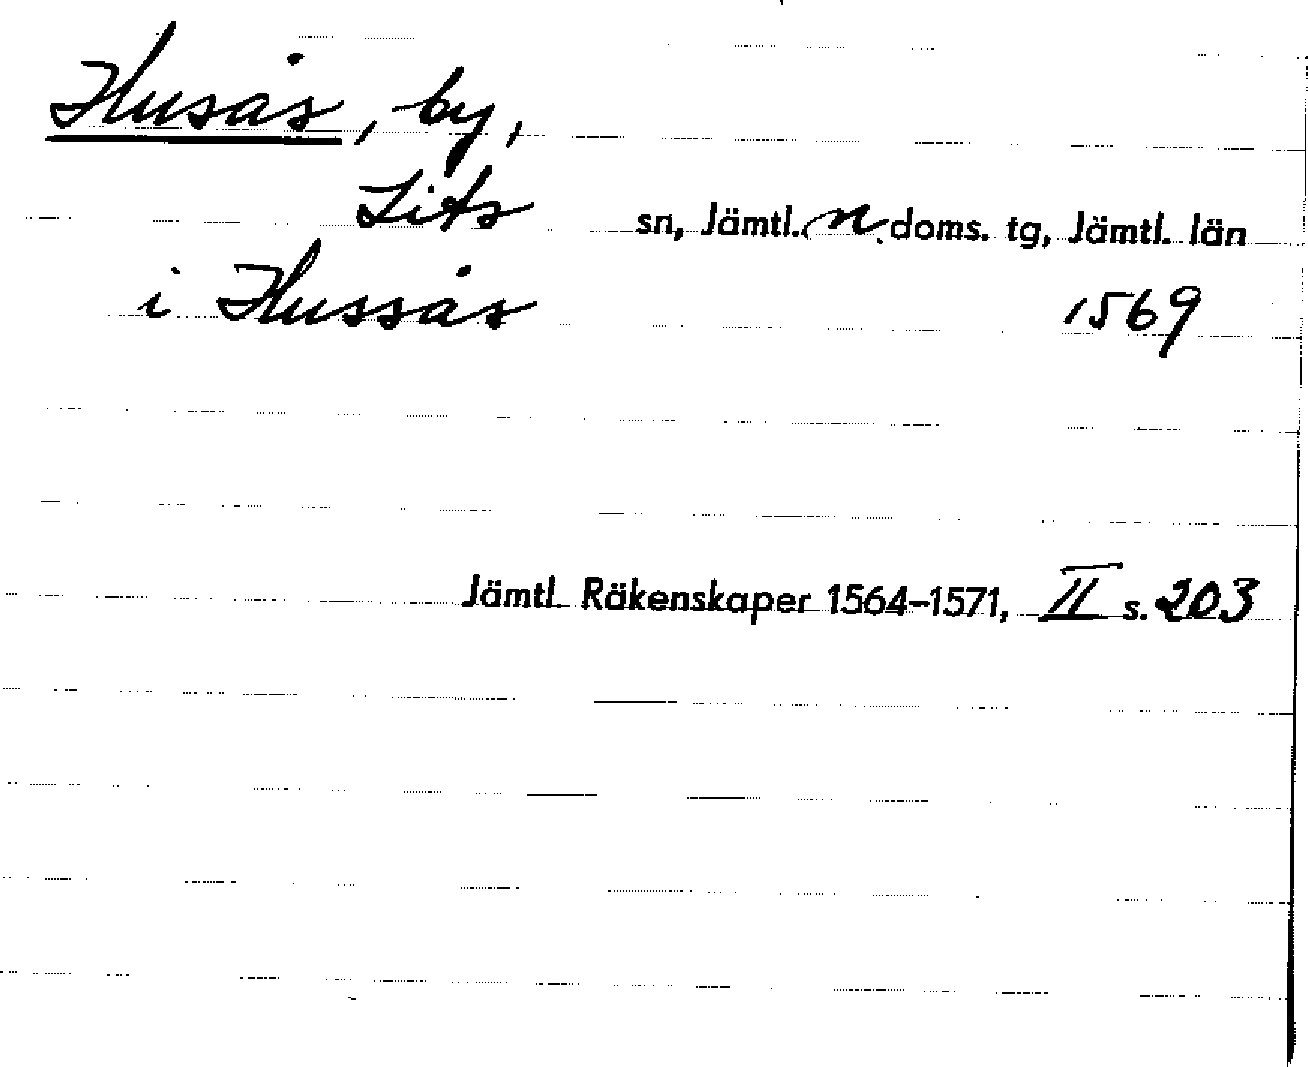 Husås, by,
Lits sn, Jämtl. n. doms. tg, Jämtl. län
i Hussås 1569
Jämtl. Räkenskaper 1564-1571, II s. 203